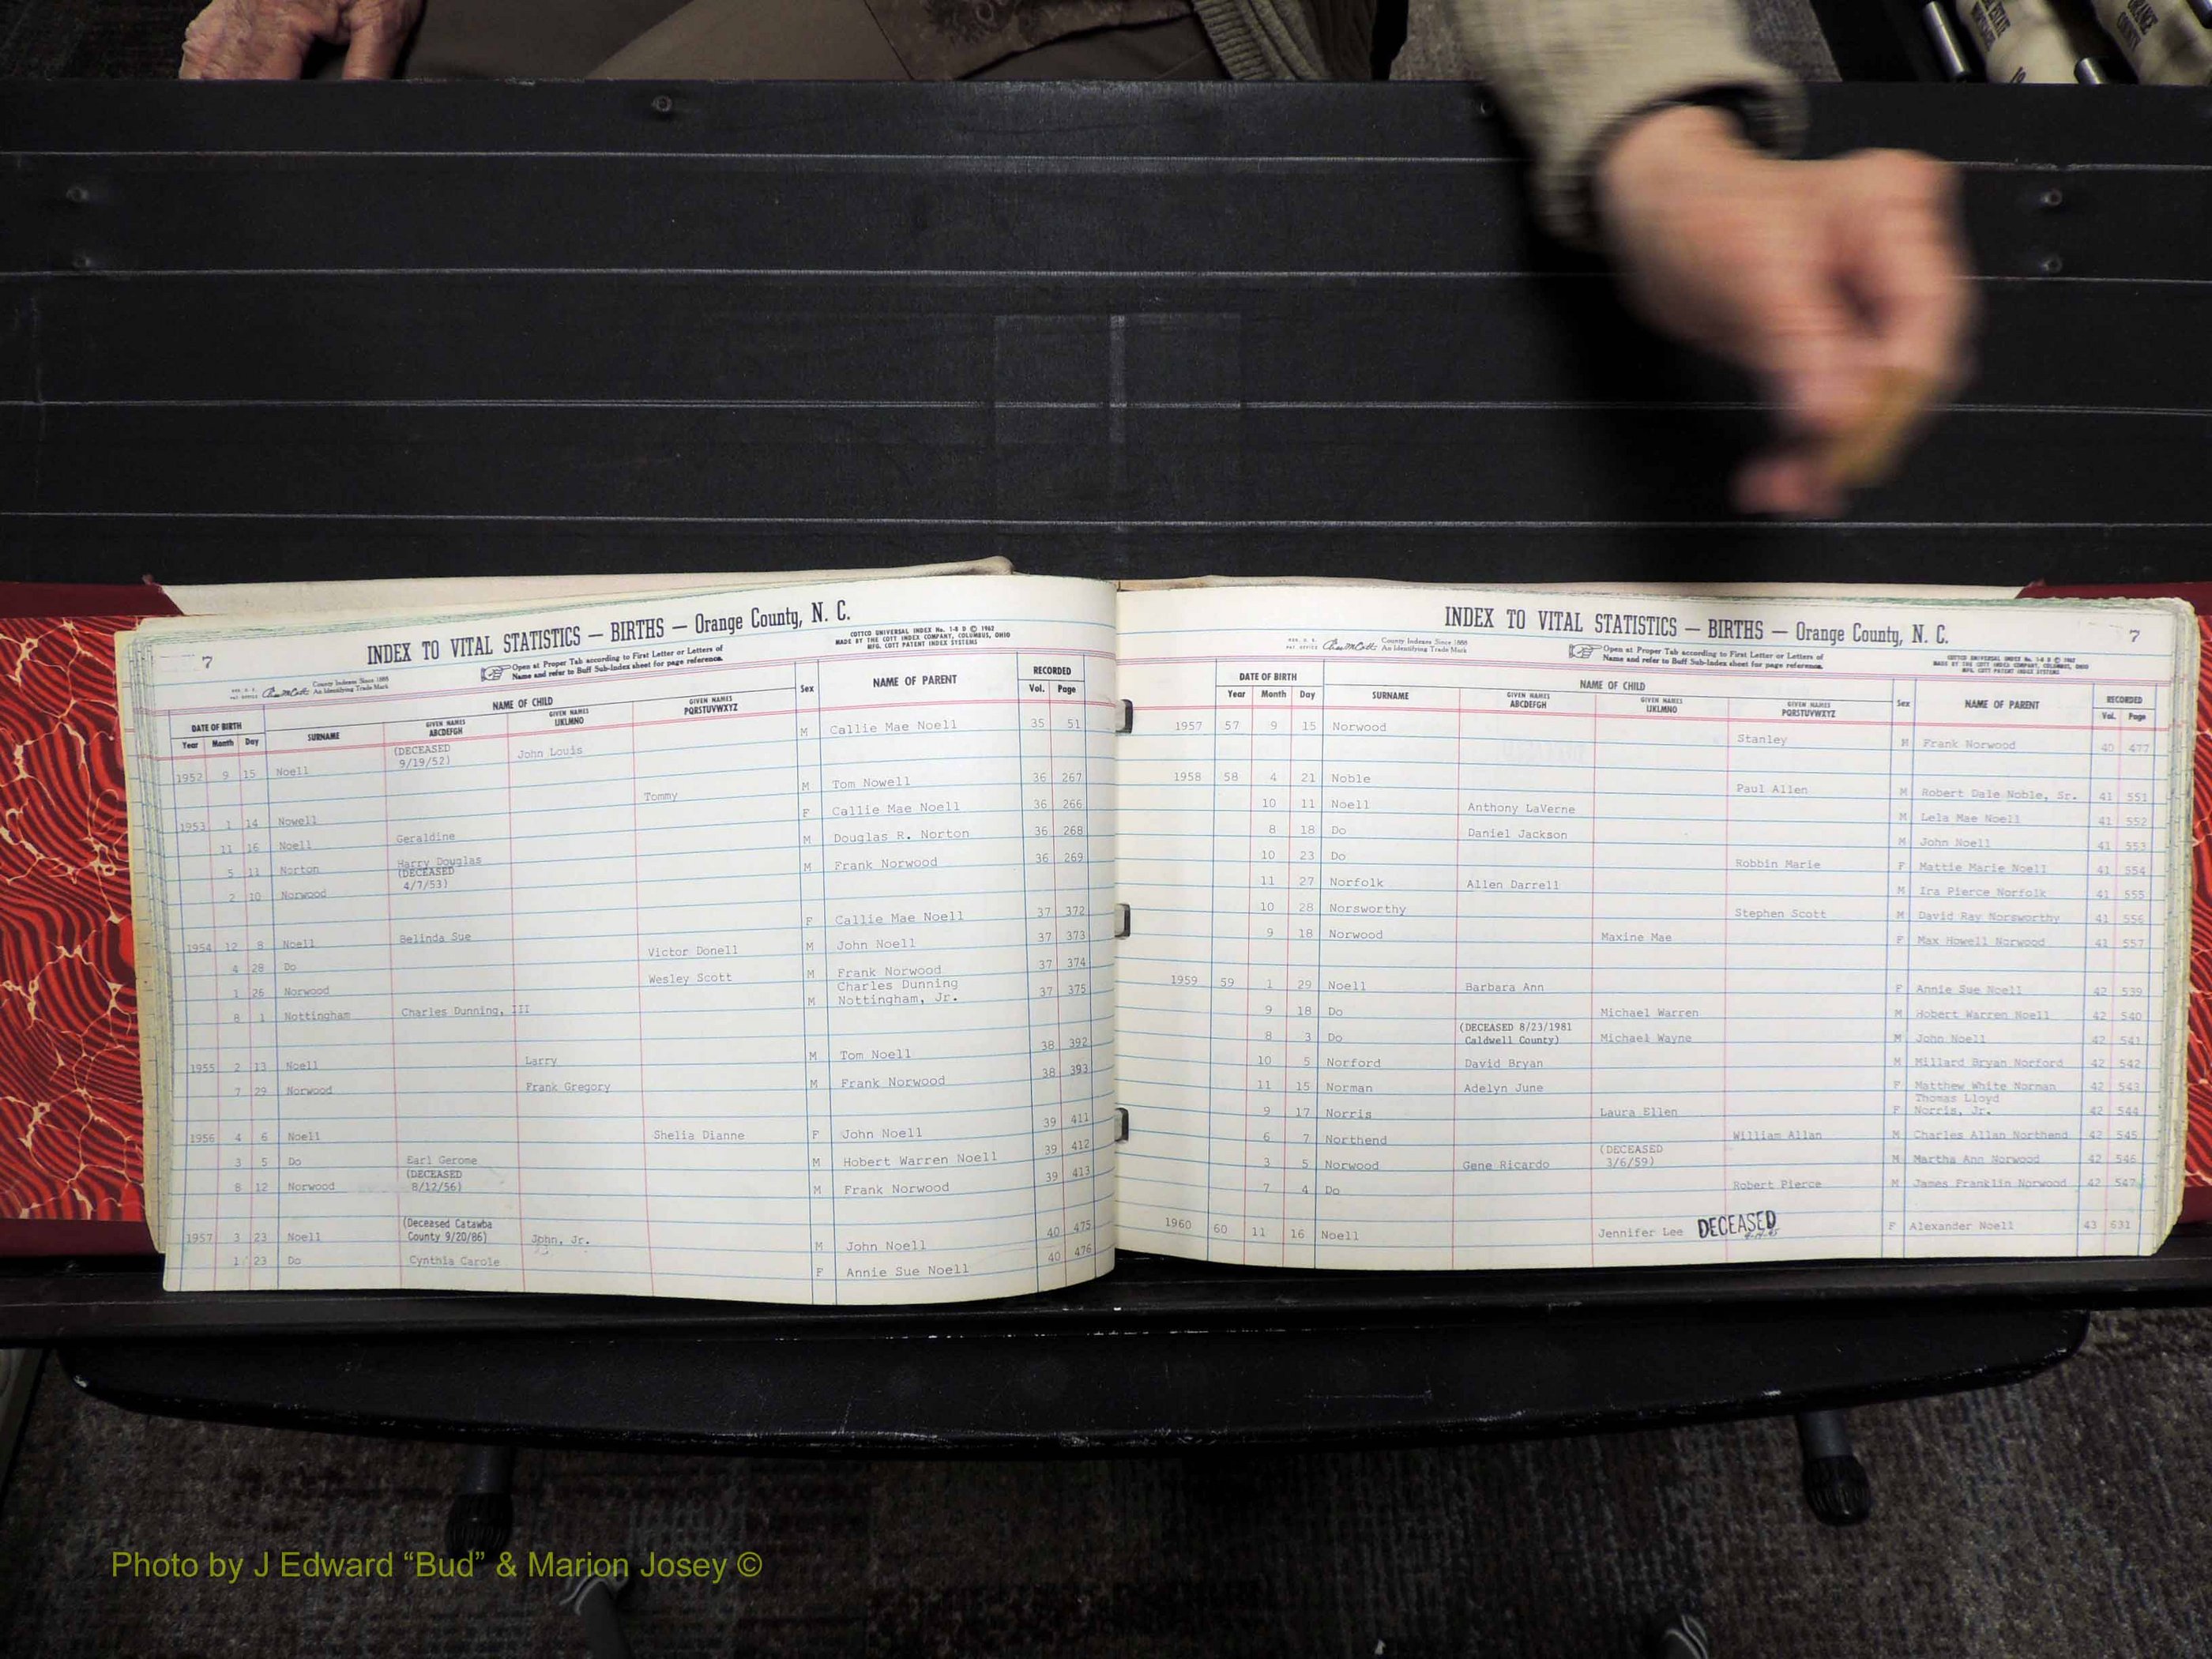 7
INDEX TO VITAL STATISTICS — BIRTHS — Orange County, N. C.
COTTCO UNIVERSAL INDEX No. 1-8 D © 1962
MADE BY THE COTT INDEX COMPANY, COLUMBUS, OHIO
MFG. COTT PATENT INDEX SYSTEMS
County Indexes Since 1888
An Identifying Trade Mark
Open at Proper Tab according to First Letter or Letters of
Name and refer to Buff Sub-Index sheet for page reference.
DATE OF BIRTH NAME OF CHILD Sex NAME OF PARENT RECORDED
Year Month Day SURNAME GIVEN NAMES ABCDEFGH GIVEN NAMES IJKLMNO GIVEN NAMES PQRSTUVWXYZ Vol. Page
(DECEASED
1952 9 15 Noell 9/19/52) John Louis M Callie Mae Noell 35 51
1953 1 14 Nowell Tommy M Tom Nowell 36 267
11 16 Noell Geraldine F Callie Mae Noell 36 266
5 11 Norton Harry Douglas M Douglas R. Norton 36 268
(DECEASED
2 10 Norwood 4/7/53) M Frank Norwood 36 269
1954 12 8 Noell Belinda Sue F Callie Mae Noell 37 372
4 28 Do Victor Donell M John Noell 37 373
1 26 Norwood Wesley Scott M Frank Norwood 37 374
Charles Dunning
8 1 Nottingham Charles Dunning, III M Nottingham, Jr. 37 375
1955 2 13 Noell Larry M Tom Noell 38 392
7 29 Norwood Frank Gregory M Frank Norwood 38 393
1956 4 6 Noell Shelia Dianne F John Noell 39 411
3 5 Do Earl Gerome M Hobert Warren Noell 39 412
(DECEASED
8 12 Norwood 8/12/56) M Frank Norwood 39 413
(Deceased Catawba
1957 3 23 Noell County 9/20/86) John, Jr. M John Noell 40 475
1 23 Do Cynthia Carole F Annie Sue Noell 40 476
INDEX TO VITAL STATISTICS — BIRTHS — Orange County, N. C.
7
County Indexes Since 1888
An Identifying Trade Mark
Open at Proper Tab according to First Letter or Letters of
Name and refer to Buff Sub-Index sheet for page reference.
COTTCO UNIVERSAL INDEX No. 1-8 D © 1962
MADE BY THE COTT INDEX COMPANY, COLUMBUS, OHIO
MFG. COTT PATENT INDEX SYSTEMS
DATE OF BIRTH NAME OF CHILD Sex NAME OF PARENT RECORDED
Year Month Day SURNAME GIVEN NAMES ABCDEFGH GIVEN NAMES IJKLMNO GIVEN NAMES PQRSTUVWXYZ Vol. Page
1957 57 9 15 Norwood Stanley M Frank Norwood 40 477
1958 58 4 21 Noble Paul Allen M Robert Dale Noble, Sr. 41 551
10 11 Noell Anthony LaVerne M Lela Mae Noell 41 552
8 18 Do Daniel Jackson M John Noell 41 553
10 23 Do Robbin Marie F Mattie Marie Noell 41 554
11 27 Norfolk Allen Darrell M Ira Pierce Norfolk 41 555
10 28 Norsworthy Stephen Scott M David Ray Norsworthy 41 556
9 18 Norwood Maxine Mae F Max Howell Norwood 41 557
1959 59 1 29 Noell Barbara Ann F Annie Sue Noell 42 539
9 18 Do Michael Warren M Hobert Warren Noell 42 540
(DECEASED 8/23/1981
8 3 Do Caldwell County) Michael Wayne M John Noell 42 541
10 5 Norford David Bryan M Millard Bryan Norford 42 542
11 15 Norman Adelyn June F Matthew White Norman 42 543
Thomas Lloyd
9 17 Norris Laura Ellen F Norris, Jr. 42 544
6 7 Northend William Allan M Charles Allan Northend 42 545
(DECEASED
3 5 Norwood Gene Ricardo 3/6/59) M Martha Ann Norwood 42 546
7 4 Do Robert Pierce M James Franklin Norwood 42 547
1960 60 11 16 Noell Jennifer Lee DECEASED F Alexander Noell 43 631
Photo by J Edward “Bud” & Marion Josey ©